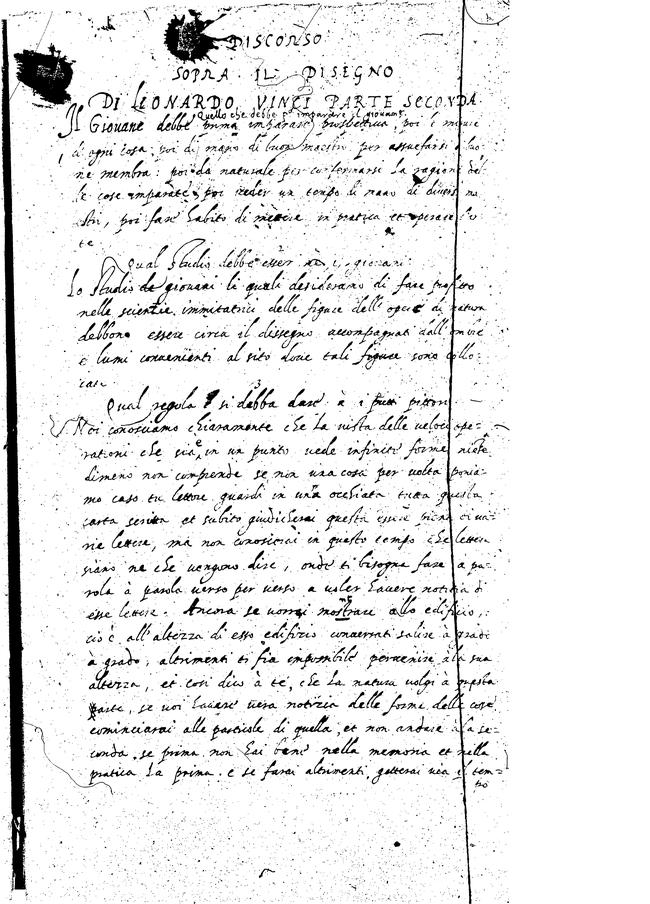 DISCORSO
SOPRA IL DISEGNO
DI LEONARDO VINCI PARTE SECONDA
Quello che debbe pª imparare il giovane
Il Giovane debbe prima imparare prospettiva, poi le misure
d'ogni cosa, poi di mano di buon maestro per assuefarsi a buo
ne membra: poi da naturale per confermarsi la ragione del
le cose imparate, poi veder un tempo di mano di diversi ma
estri, poi fare habito di mettere in pratica et operare l'ar
te.
Qual Studio debbe esser nè i giovani.
Lo Studio de giovani li quali desiderano di fare profitto
nelle scientie immitatrici delle figure dell'opere di natura
debbono essere circa il dissegno accompagnati dall'ombre
e lumi convenienti al sito dove tali figure sono collo:
cate.
Qual regola si debba dare à i putti pittori
Noi conosciamo chiaramente che la vista delle veloci ope-
rationi che sia, in un punto vede infinite forme, niete
dimeno non comprende se non una cosa per volta, ponia-
mo caso tu lettore guardi in una ochiata tutta questa
carta scritta et subito giudicherai questa essere piena di va-
rie lettere, ma non conoscerai in questo tempo che lettere
siano ne che vengono dire, onde ti bisogna fare a pa-
rola à parola verso per verso a voler havere notitia di
esse lettere. Ancora se vorrai montare allo edificio,
ciò è all'altezza di esso edifizio converrati salire à grado
à grado, altrimenti ti fia impossibile pervenire alla sua
altezza, et così dico à te, che la natura volgi à questa
parte, se voi havere vera notizia delle forme delle cose
cominciarai alle particole di quella, et non andare alla se-
conda, se prima non hai bene nella memoria et nella
pratica la prima. e se farai altrimenti, getterai via il tem=
po